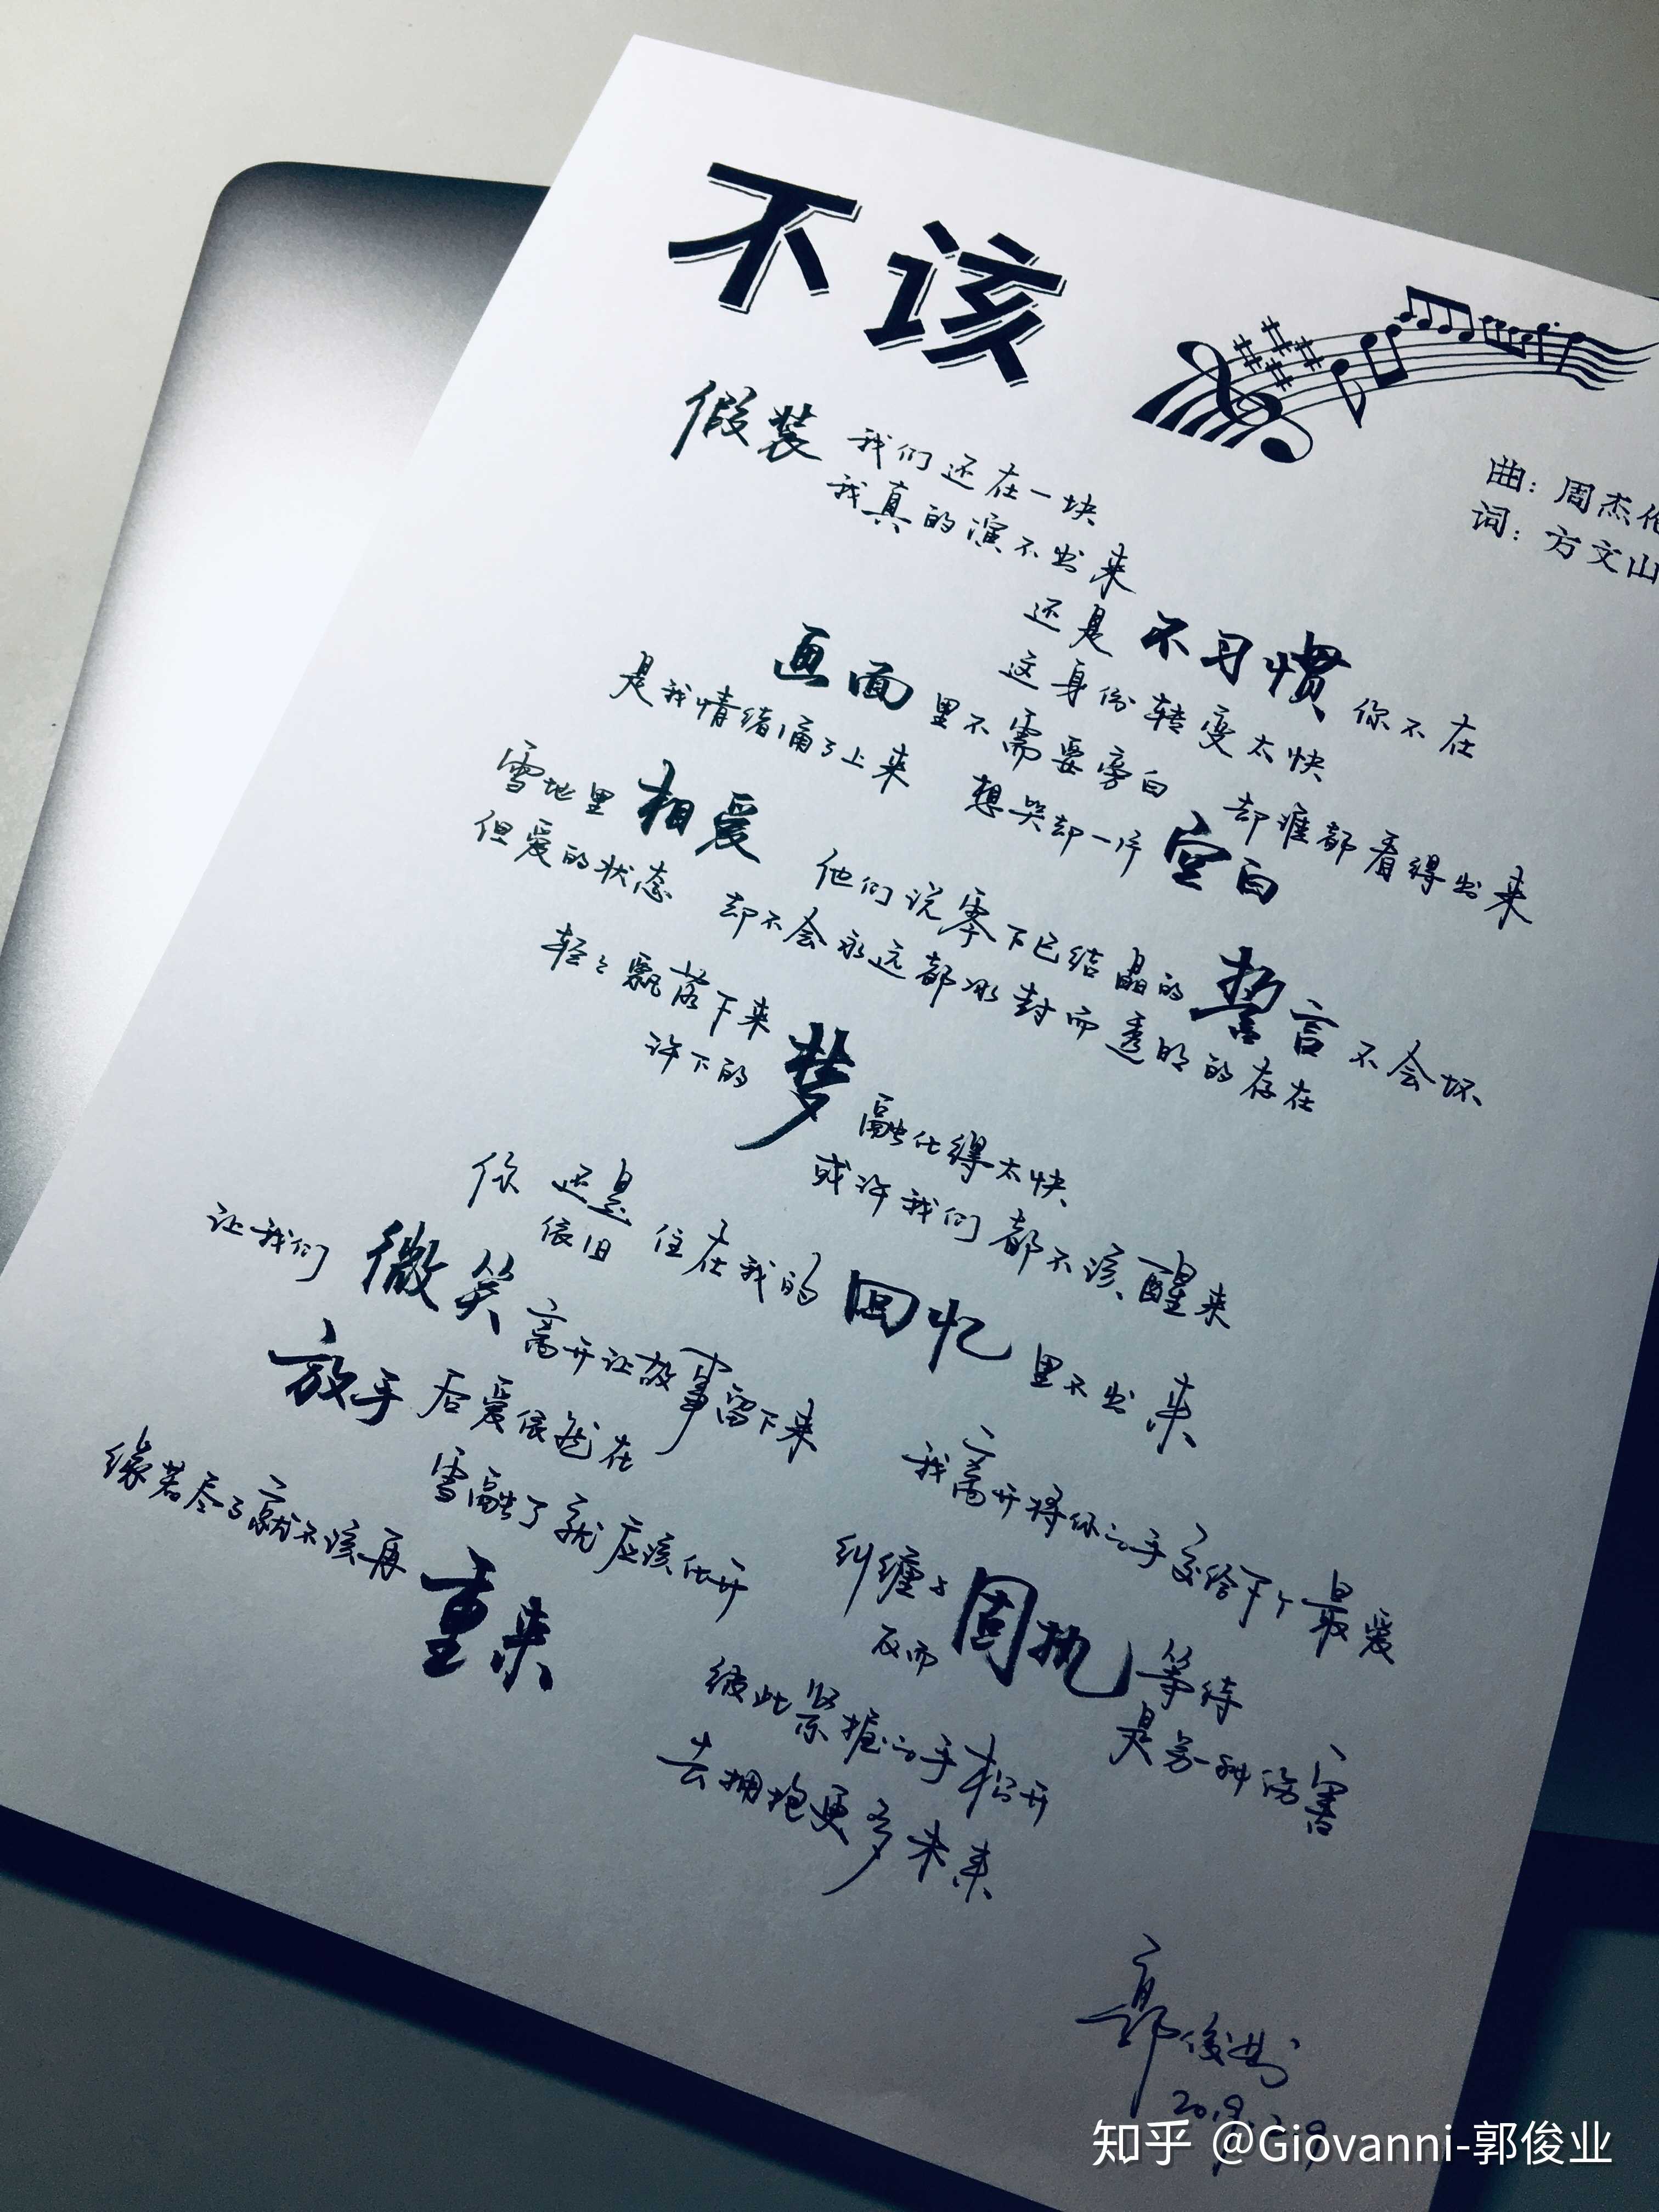 不该
曲：周杰伦
词：方文山
假装我们还在一块
我真的演不出来
还是不习惯你不在
这身份转变太快
画面里不需要旁白 却谁都看得出来
是我情绪涌了上来 想哭却一片空白
雪地里相爱 他们说零下已结晶的誓言不会坏
但爱的状态 却不会永远都冰封而透明的存在
轻轻飘落下来
许下的梦融化得太快
或许我们都不该醒来
你还是
依旧住在我的回忆里不出来
让我们微笑离开让故事留下来
放手后爱依然在
雪融了就应该化开
缘若尽了就不该再重来
我离开将你之手交给下个最爱
纠缠与
反而固执等待
是另一种伤害
彼此紧握之手松开
去拥抱更多未来
郭俊业
知乎 @Giovanni-郭俊业